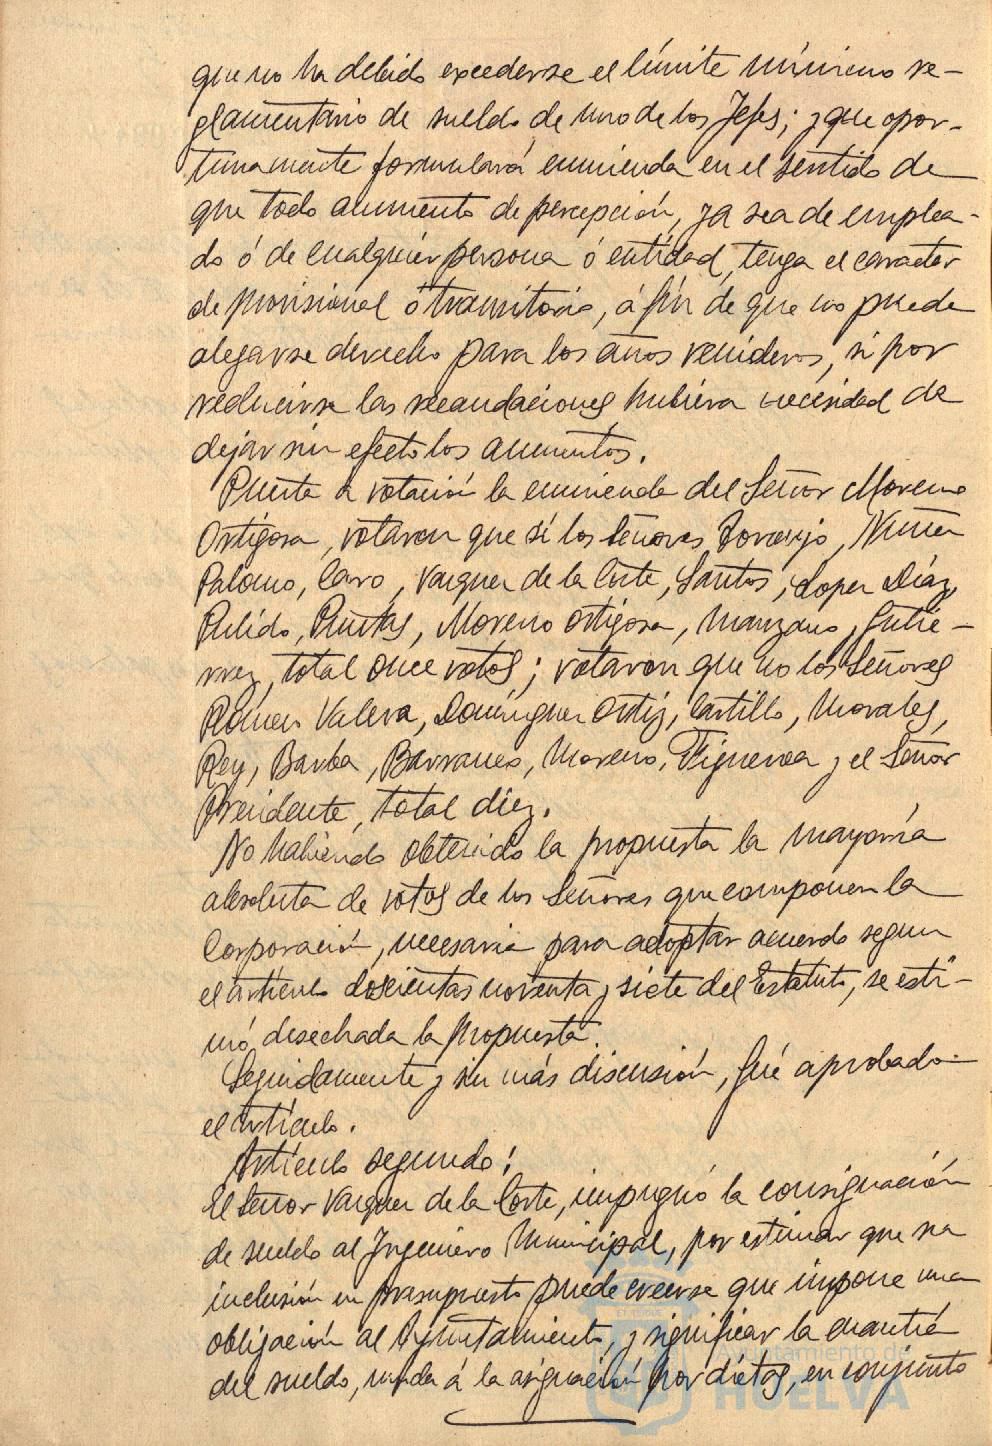 que no ha debido excederse el límite mínimo re-
glamentario de sueldo de uno de los Jefes; y que opor-
tunamente formulará enmienda en el sentido de
que todo aumento de percepción, ya sea de emplea-
do ó de cualquier persona ó entidad, tenga el caracter
de provisional ó transitorio, á fin de que no puede
alegarse derecho para los años venideros, si por
reducirse las recaudaciones hubiera necesidad de
dejar sin efecto los aumentos.
Puesta a votación la enmienda del Señor Moreno
Ortigosa, votaron que sí los señores Toronjo, Nuñez
Palomo, Claro, Vazquez de la Corte, Santos, Lopez Díaz,
Pulido, Puntas, Moreno Ortigosa, Manzano, Gutié-
rrez, total once votos; votaron que no los Señores
Romero Valera, Domínguez Ortiz, Castillo, Morales,
Rey, Barba, Barranco, Moreno, Figueroa y el Señor
Presidente, total diez.
No habiendo obtenido la propuesta la mayoría
absoluta de votos de los Señores que componen la
Corporación, necesaria para adoptar acuerdo segun
el artículo doscientos noventa y siete del Estatuto, se esti-
mó desechada la propuesta.
Seguidamente y sin más discusión, fué aprobado
el artículo.
Artículo segundo:
El Señor Vazquez de la Corte, impugnó la consignación
de sueldo al Ingeniero Municipal, por estimar que su
inclusión en presupuesto puede creerse que impone una
obligación al Ayuntamiento, y significar la cuantía
del sueldo, unida á la asignación por dietas, en conjunto
Ayuntamiento de
HUELVA